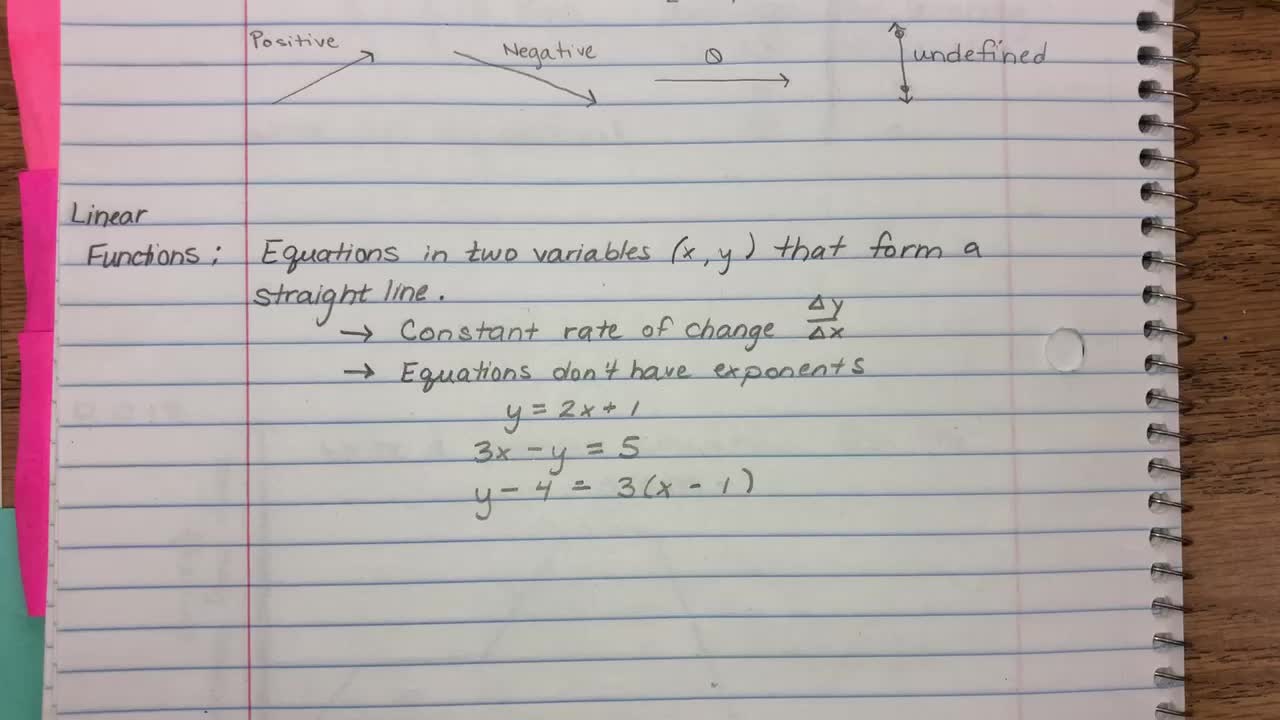 Positive
Negative
0
undefined
Linear
Functions; Equations in two variables (x, y) that form a
straight line.
→ Constant rate of change Δy/Δx
→ Equations don't have exponents
y = 2x + 1
3x - y = 5
y - 4 = 3(x - 1)